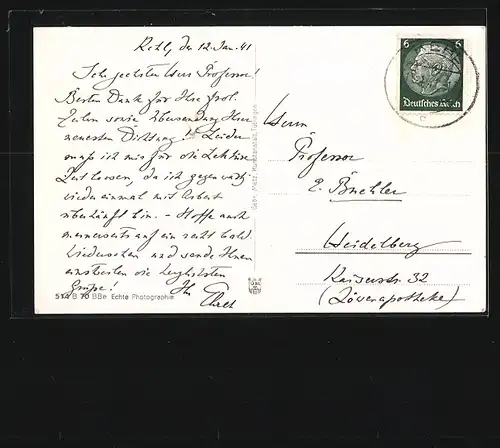 Kehl, den 12. Jan. 41
Sehr geehrter Herr Professor!
Besten Dank für Ihre frdl.
Zeilen sowie Übersendung Ihrer
neuesten Dichtung! Leider
muß ich mir für die Lektüre
Zeit lassen, da ich gegenwärtig
wieder einmal mit Arbeit
überhäuft bin. - Hoffe auch
meinerseits auf ein recht bald.
Wiedersehen und sende Ihnen
einstweilen die herzlichsten
Grüße! Ihr
514 B 70 BBe Echte Photographie
Gebr. Metz, Kunstanstalt, Tübingen
6 6
Deutsches Reich
Herrn
Professor
E. Buchler
Heidelberg
Kaiserstr. 32
(Löwenapotheke)